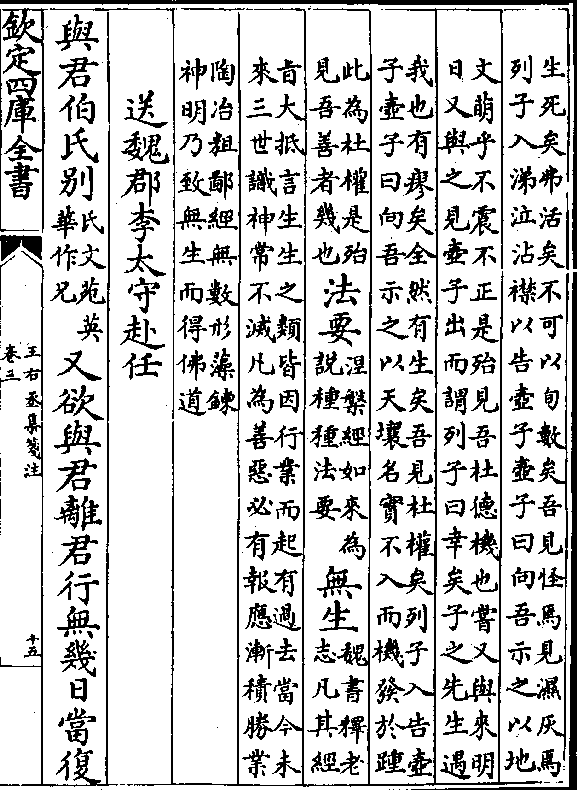 生死矣弗活矣不可以旬數矣吾見怪焉見濕灰焉
列子入涕泣沾襟以告壺子壺子曰向吾示之以地
文萌乎不震不正是殆見吾杜德機也嘗又與來明
日又與之見壺子出而謂列子曰幸矣子之先生遇
我也有瘳矣全然有生矣吾見杜權矣列子入告壺
子壺子曰向吾示之以天壤名實不入而機發於踵
此為杜權是殆
見吾善者幾也
法要
涅槃經如來為
說種種法要
無生
魏書釋老
志凡其經
旨大抵言生生之類皆因行業而起有過去當今未
來三世識神常不滅凡為善惡必有報應漸積勝業
陶冶粗鄙經無數形藻鍊
神明乃致無生而得佛道
送魏郡李太守赴任
與君伯氏別
氏文苑英
華作兄
又欲與君離君行無幾日當復
欽定四庫全書
王右丞集箋注
卷三
十五